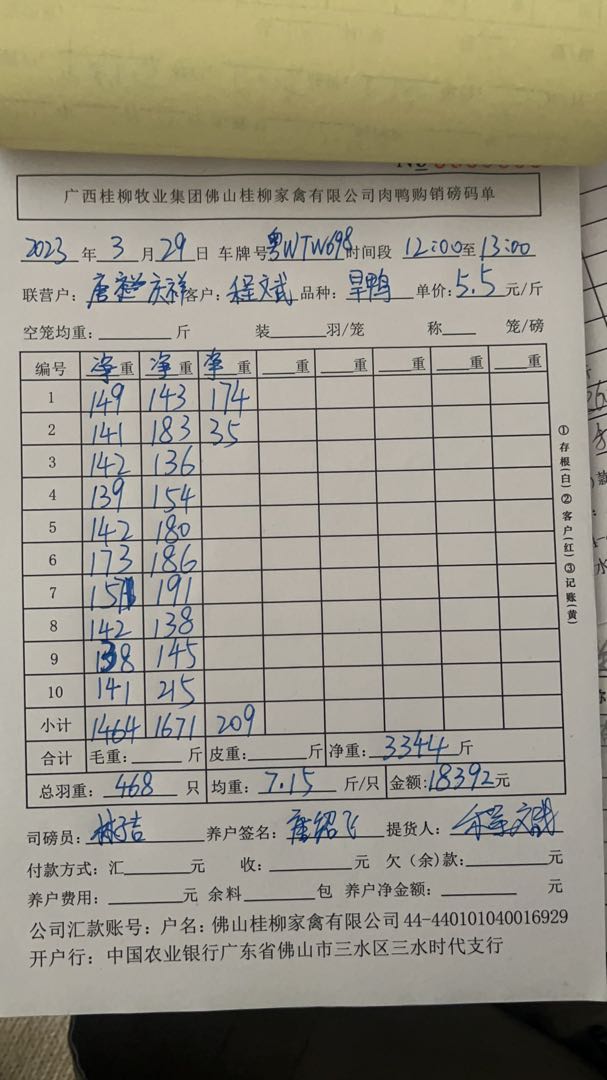 广西桂柳牧业集团佛山桂柳家禽有限公司肉鸭购销磅码单
2023 年 3 月 29 日 车牌号 粤WTW698 时间段 12:00 至 13:00
联营户: 唐 庆祥 客户: 程文斌 品种: 旱鸭 单价: 5.5 元/斤
空笼均重: 斤 装 羽/笼 称 笼/磅
编号 净重 净重 净重 重 重 重 重 重
1 149 143 174
2 141 183 35
3 142 136
4 139 154
5 142 180
6 173 186
7 191
8 142 138
9 138 145
10 141 215
小计 1464 1671 209
合计 毛重: 斤 皮重: 斤 净重: 3344 斤
总羽重: 468 只 均重: 7.15 斤/只 金额: 18392 元
司磅员: 养户签名: 唐绍飞 提货人: 程文斌
付款方式: 汇 元 收: 元 欠(余)款: 元
养户费用: 元 余料 包 养户净金额: 元
公司汇款账号: 户名: 佛山桂柳家禽有限公司 44-440101040016929
开户行: 中国农业银行广东省佛山市三水区三水时代支行
①存根(白)②客户(红)③记账(黄)